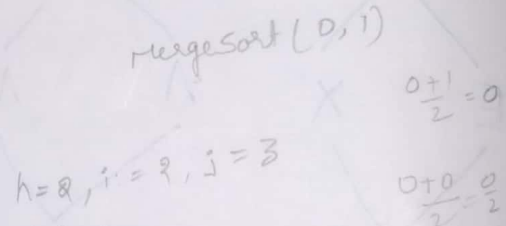 MergeSort (0, 1)
0+1/2 = 0
h=2, i = 2, j = 3
0+0/2 = 0/2